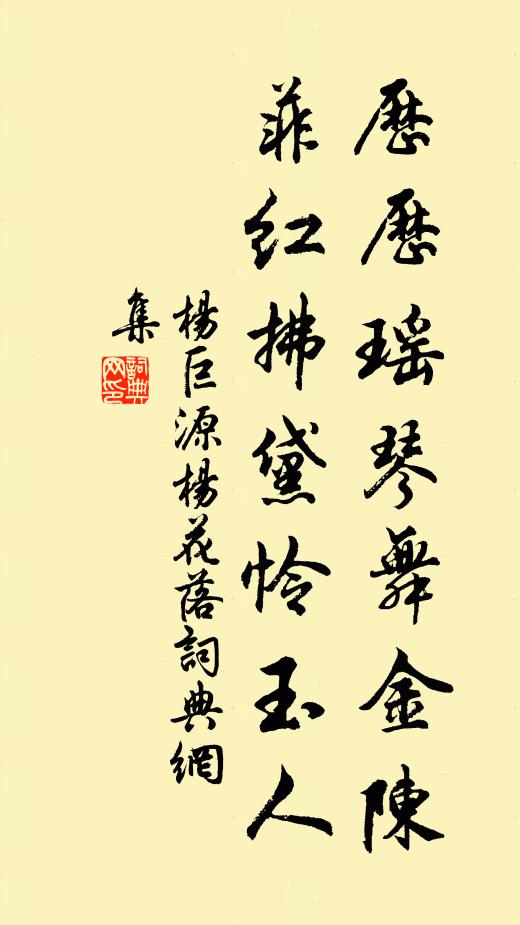 歷歷瑶琴舞金陳
菲紅拂黛怜玉人
楊巨源楊花落詞典網
集
詞典網印